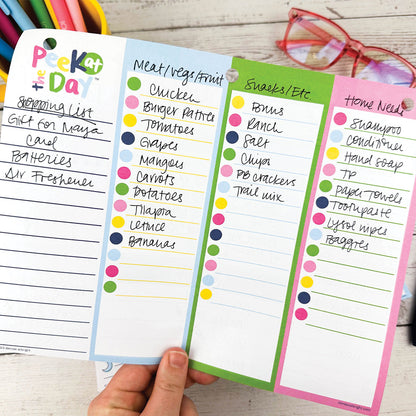 Peek at
the Day
Shopping List
Gift for Maya
Card
Batteries
Air Freshener
Meat/vegs/Fruit
Chicken
Burger Patties
Tomatoes
Grapes
Mangoes
Carrots
Potatoes
Tilapia
Lettuce
Bananas
Snacks/Etc
Buns
Ranch
Salt
Chips
PB Crackers
Trail mix
Home Needs
Shampoo
Conditioner
Hand Soap
TP
Paper Towels
Toothpaste
Lysol wipes
Baggies